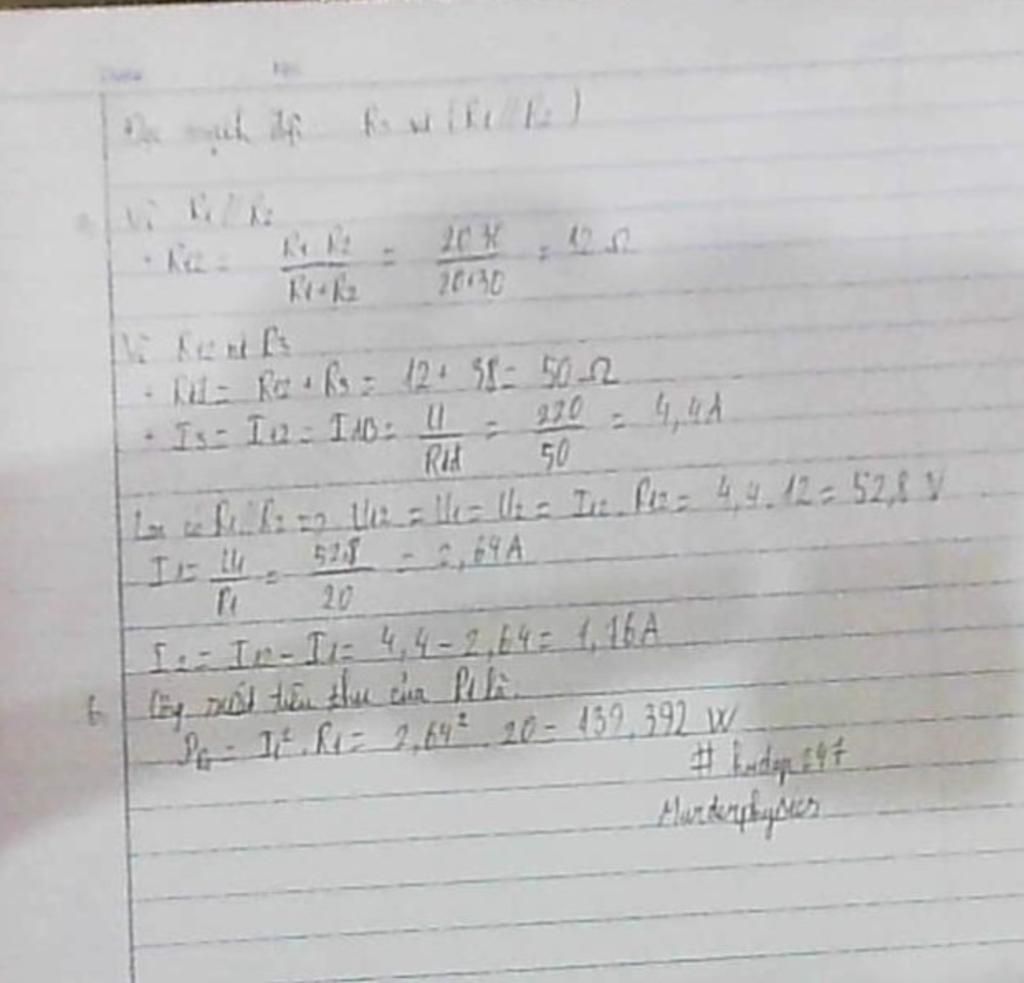 mạch điện R3 nt (R1 // R2)
Vì R1 // R2
• R12 = R1.R2 / R1+R2 = 20.30 / 20+30 = 12 Ω
Vì R12 nt R3
• Rtđ = R12 + R3 = 12 + 38 = 50 Ω
• I3 = I12 = IAB = U / Rtđ = 220 / 50 = 4,4A
R1 // R2 => U12 = U1 = U2 = I12 . R12 = 4,4 . 12 = 52,8 V
I1 = U1 / R1 = 52,8 / 20 = 2,64A
I2 = I12 - I1 = 4,4 - 2,64 = 1,76A
b. Công suất tiêu thụ của R1 là.
= I1² . R1 = 2,64² . 20 = 139,392 W
Murderphysics